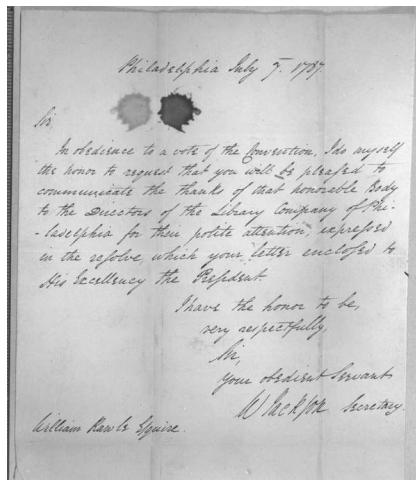 Philadelphia July 7. 1787.
Sir,
In obedience to a vote of the Convention, I do myself
the honor to request that you will be pleased to
communicate the thanks of that honorable Body
to the Directors of the Library Company of Phi-
-ladelphia for their polite attention expressed
in the resolve, which your letter enclosed to
His Excellency the President.
I have the honor to be,
very respectfully,
Sir,
your obedient Servant
W Jackson Secretary.
William Rawle Esquire.